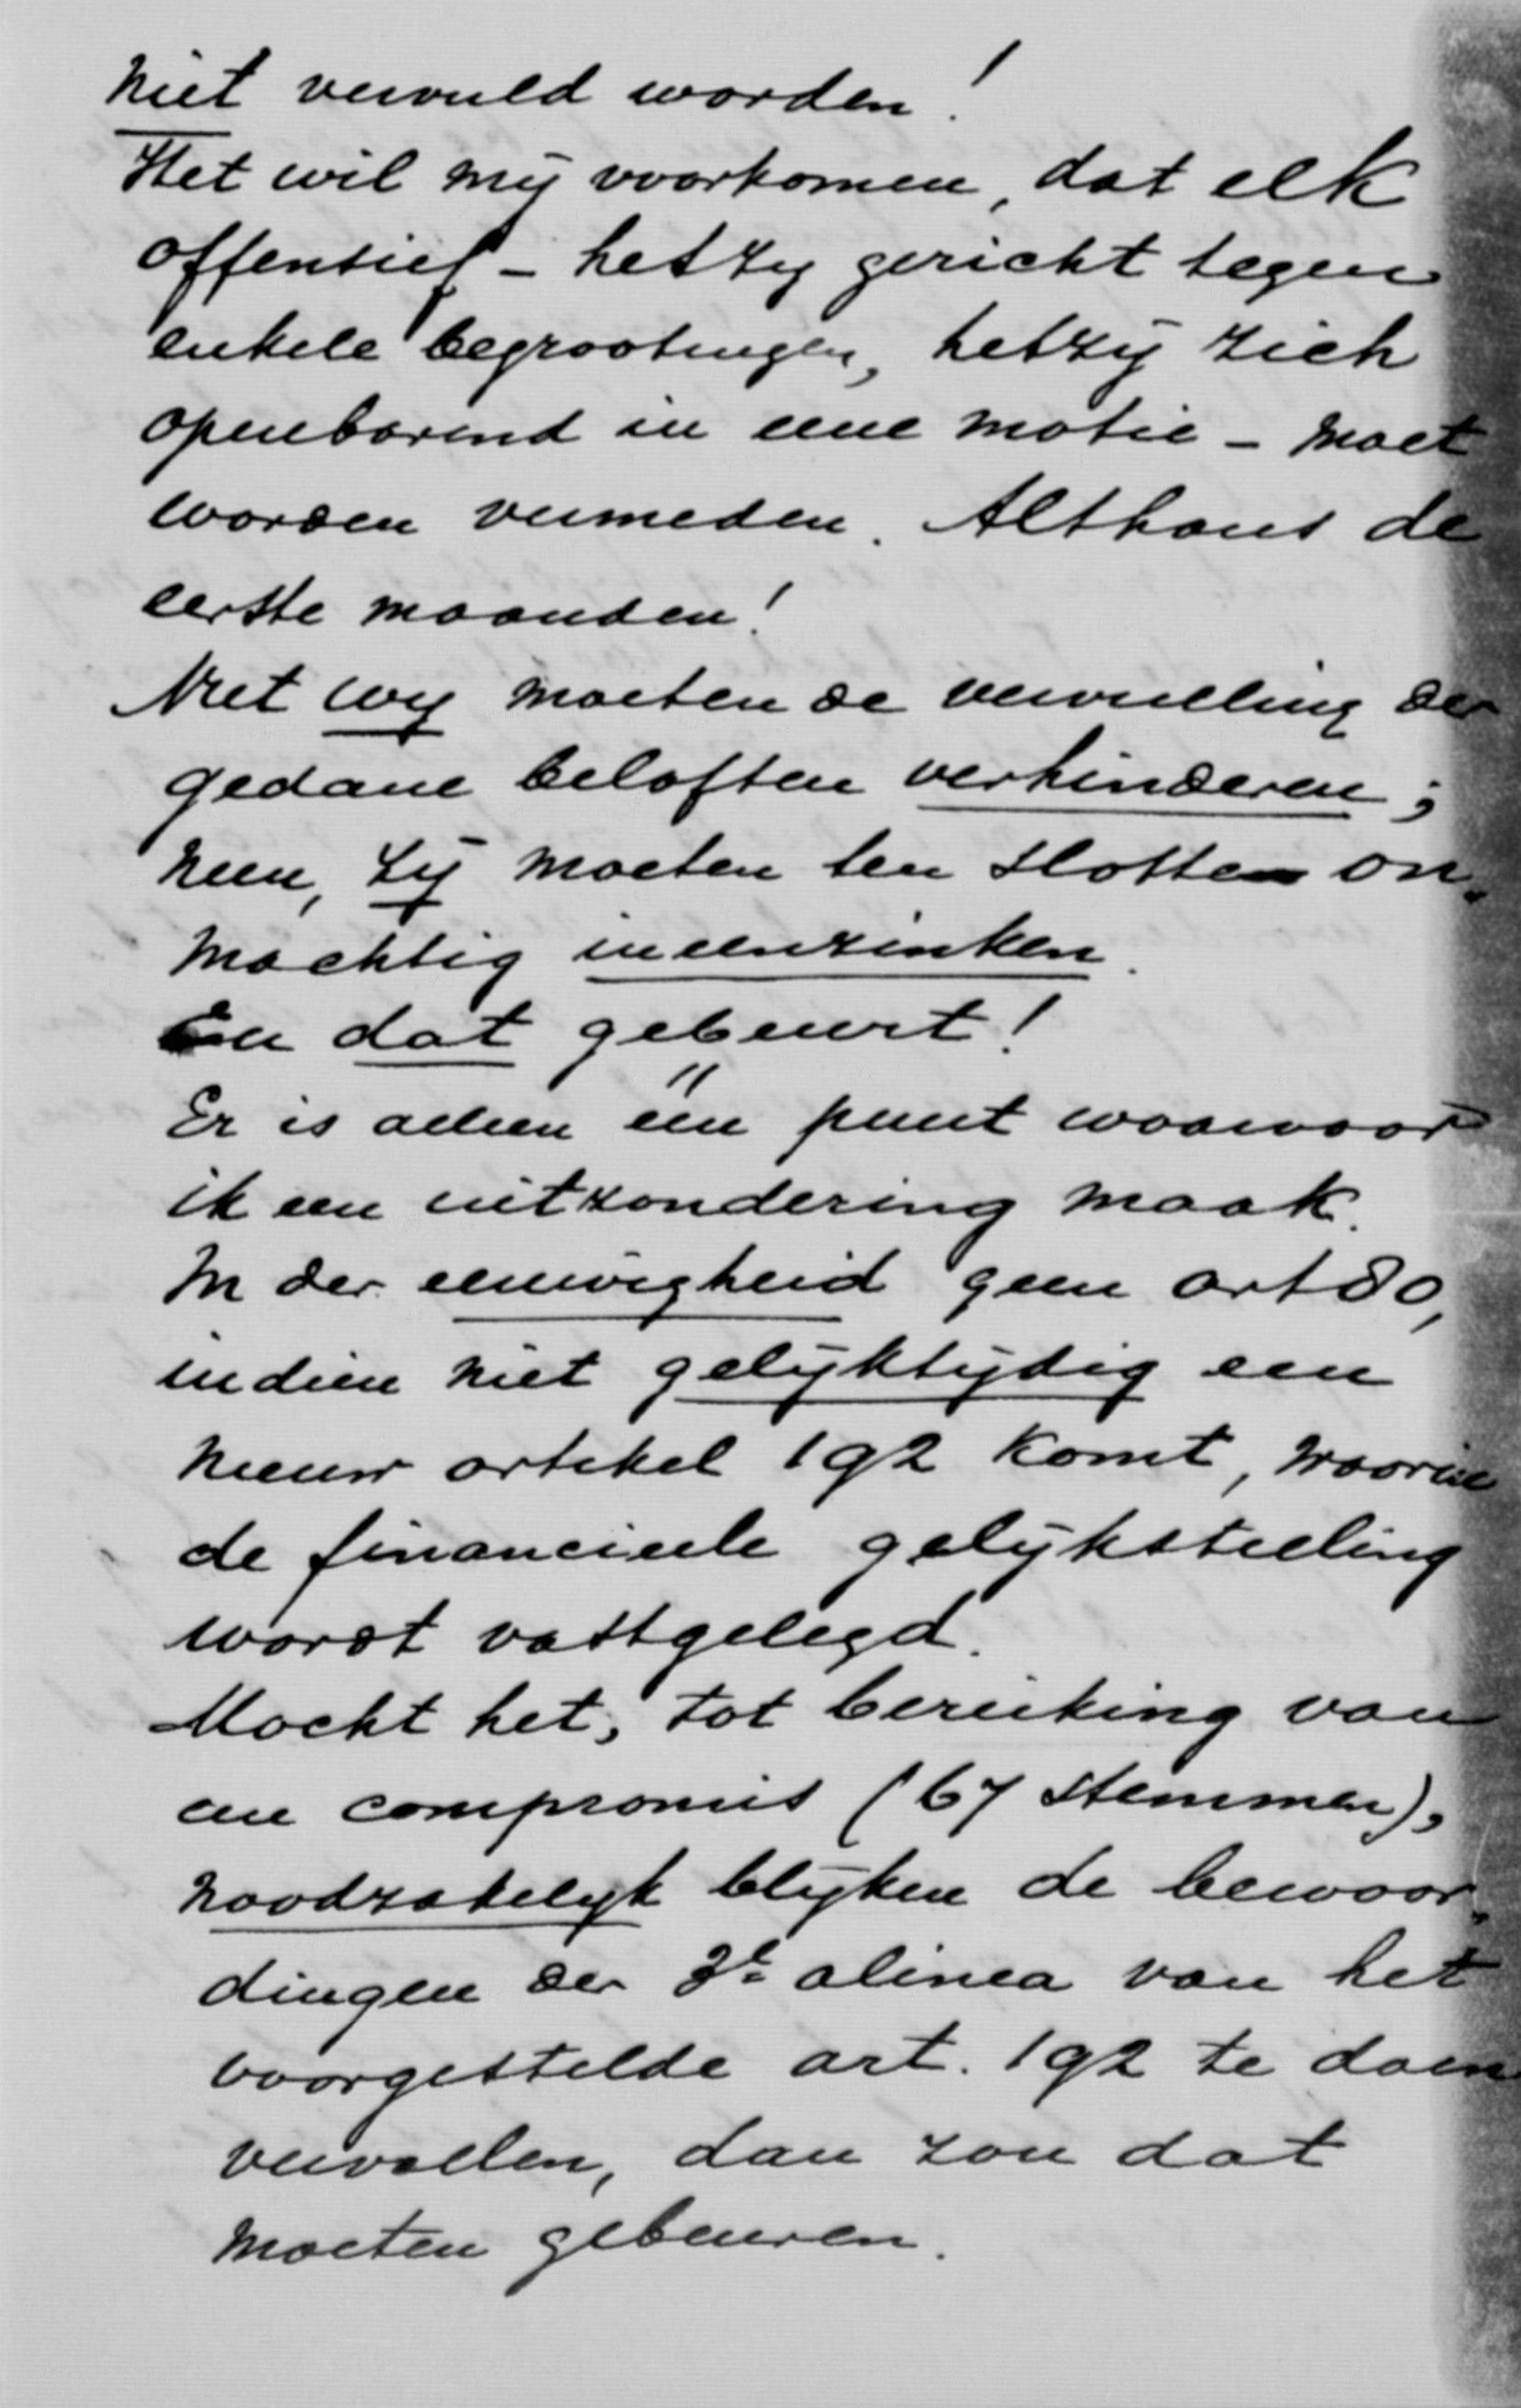 niet vervuld worden!
Het wil mij voorkomen, dat elk
offensief - hetzij gericht tegen
enkele begrootingen, hetzij zich
openbarend in eene motie - moet
worden vermeden. Althans de
eerste maanden!
Niet wij moeten de vervulling der
gedane beloften verhinderen;
neen, zij moeten ten slotte on„
machtig ineenzinken.
En dat gebeurt!
Er is alleen één punt waarvoor
ik een uitzondering maak.
In der eeuwigheid geen art 80,
indien niet gelijktijdig een
nieuw artikel 192 komt, waarin
de financieele gelijkstelling
wordt vastgelegd.
Mocht het, tot bereiking van
een compromis (67 stemmen),
noodzakelijk blijken de bewoor„
dingen der 3e alinea van het
voorgestelde art. 192 te doen
vervallen, dan zou dat
moeten gebeuren.